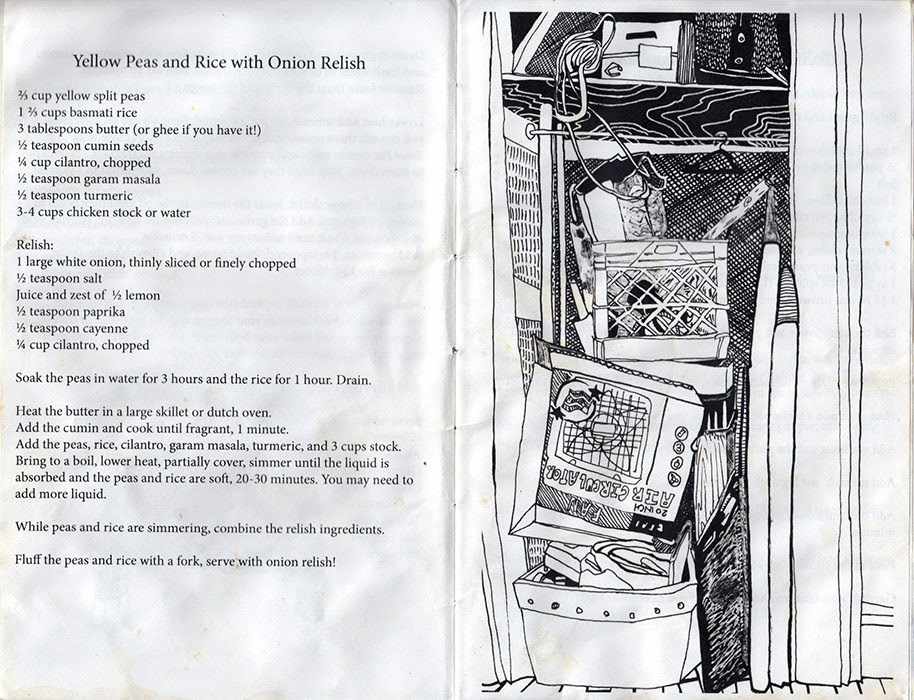 Yellow Peas and Rice with Onion Relish
⅔ cup yellow split peas
1 ⅔ cups basmati rice
3 tablespoons butter (or ghee if you have it!)
½ teaspoon cumin seeds
¼ cup cilantro, chopped
½ teaspoon garam masala
½ teaspoon turmeric
3-4 cups chicken stock or water
Relish:
1 large white onion, thinly sliced or finely chopped
½ teaspoon salt
Juice and zest of ½ lemon
½ teaspoon paprika
½ teaspoon cayenne
¼ cup cilantro, chopped
Soak the peas in water for 3 hours and the rice for 1 hour. Drain.
Heat the butter in a large skillet or dutch oven.
Add the cumin and cook until fragrant, 1 minute.
Add the peas, rice, cilantro, garam masala, turmeric, and 3 cups stock.
Bring to a boil, lower heat, partially cover, simmer until the liquid is
absorbed and the peas and rice are soft, 20-30 minutes. You may need to
add more liquid.
While peas and rice are simmering, combine the relish ingredients.
Fluff the peas and rice with a fork, serve with onion relish!
AIR CIRCULATOR
FAN
20 INCH